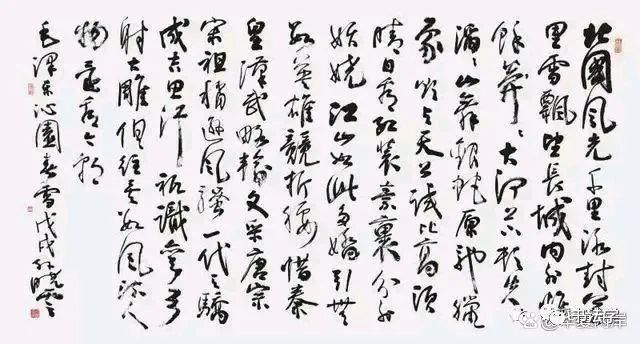 北國風光千里冰封萬
里雪飄望長城內外惟
餘莽莽大河上下頓失
滔滔山舞銀蛇原馳蠟
象欲與天公試比高須
晴日看紅裝素裹分外
妖嬈江山如此多嬌引無
數英雄競折腰惜秦
皇漢武略輸文采唐宗
宋祖稍遜風騷一代天驕
成吉思汗祇識彎弓
射大雕俱往矣數風流人
物還看今朝
毛澤東沁園春雪戊戌孫曉雲